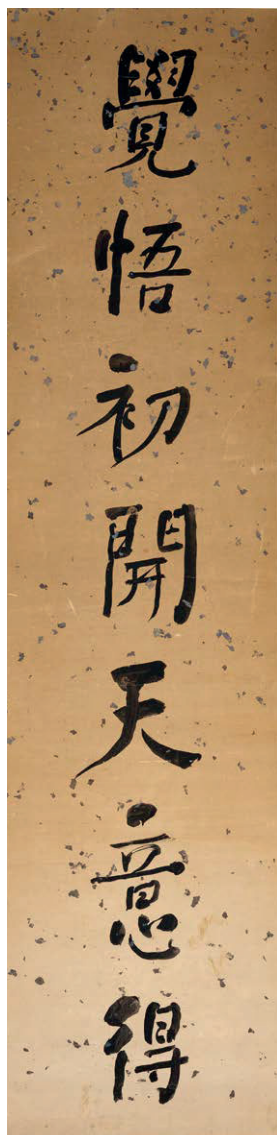 覺悟初開天意得